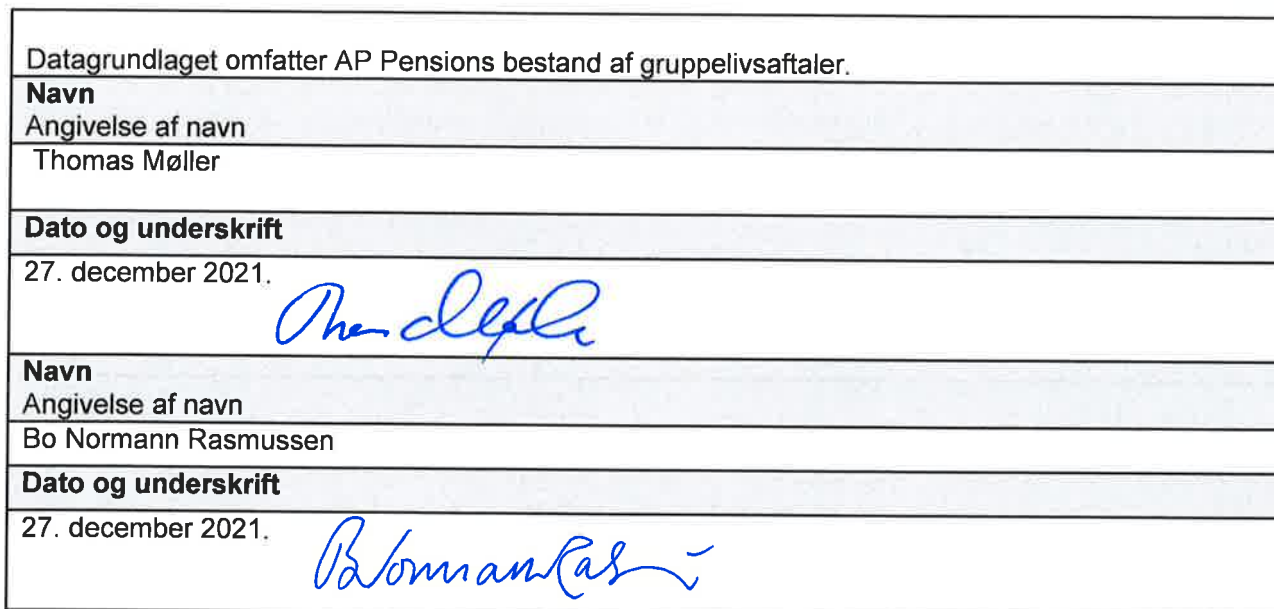 Datagrundlaget omfatter AP Pensions bestand af gruppelivsaftaler.
Navn
Angivelse af navn
Thomas Møller
Dato og underskrift
27. december 2021.
Navn
Angivelse af navn
Bo Normann Rasmussen
Dato og underskrift
27. december 2021.